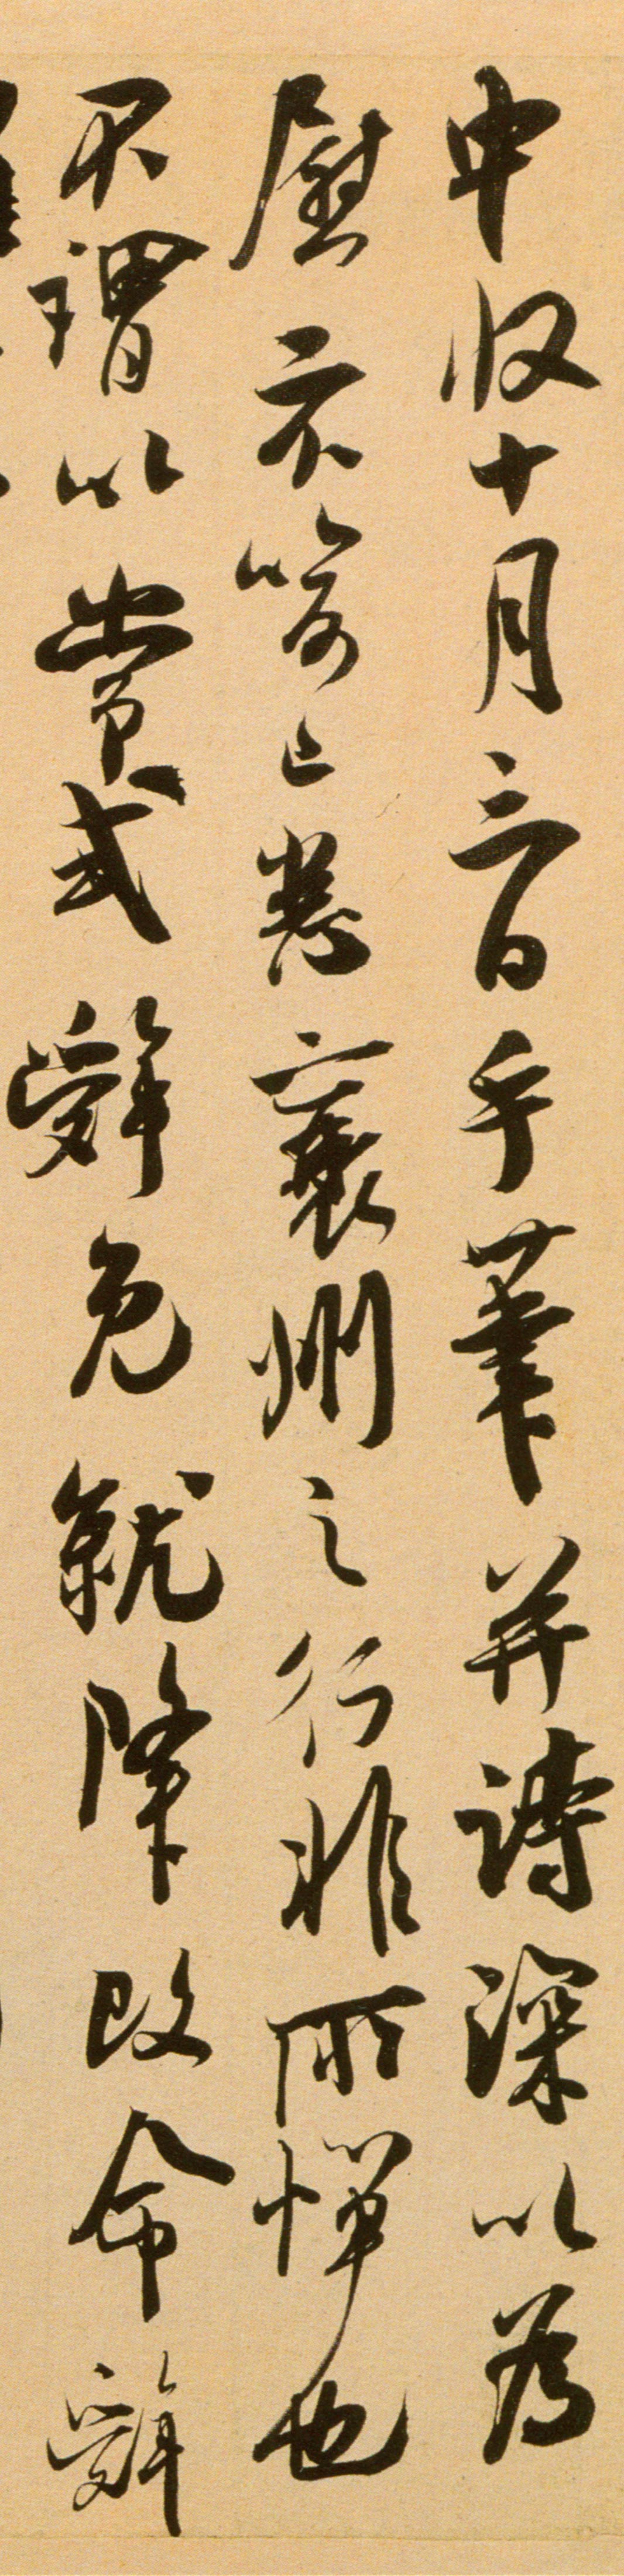 中收十月三日手筆并詩深以爲
慰示喻已悉襄州之行非所憚也
不謂以常式辭免就降改命辭